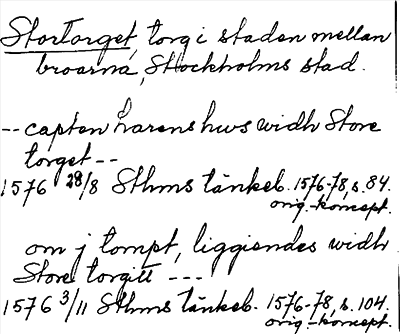 Stortorget, torg i staden mellan
broarna, Stockholms stad.
-- capten Larens hws widh Store
torget --
1576 28/8 Sthms tänkeb. 1576-78, s. 84.
orig.-koncept.
om j tompt, liggiendes widh
Store torgitt ---
1576 3/11 Sthms tänkeb. 1576-78, s. 104.
orig.-koncept.